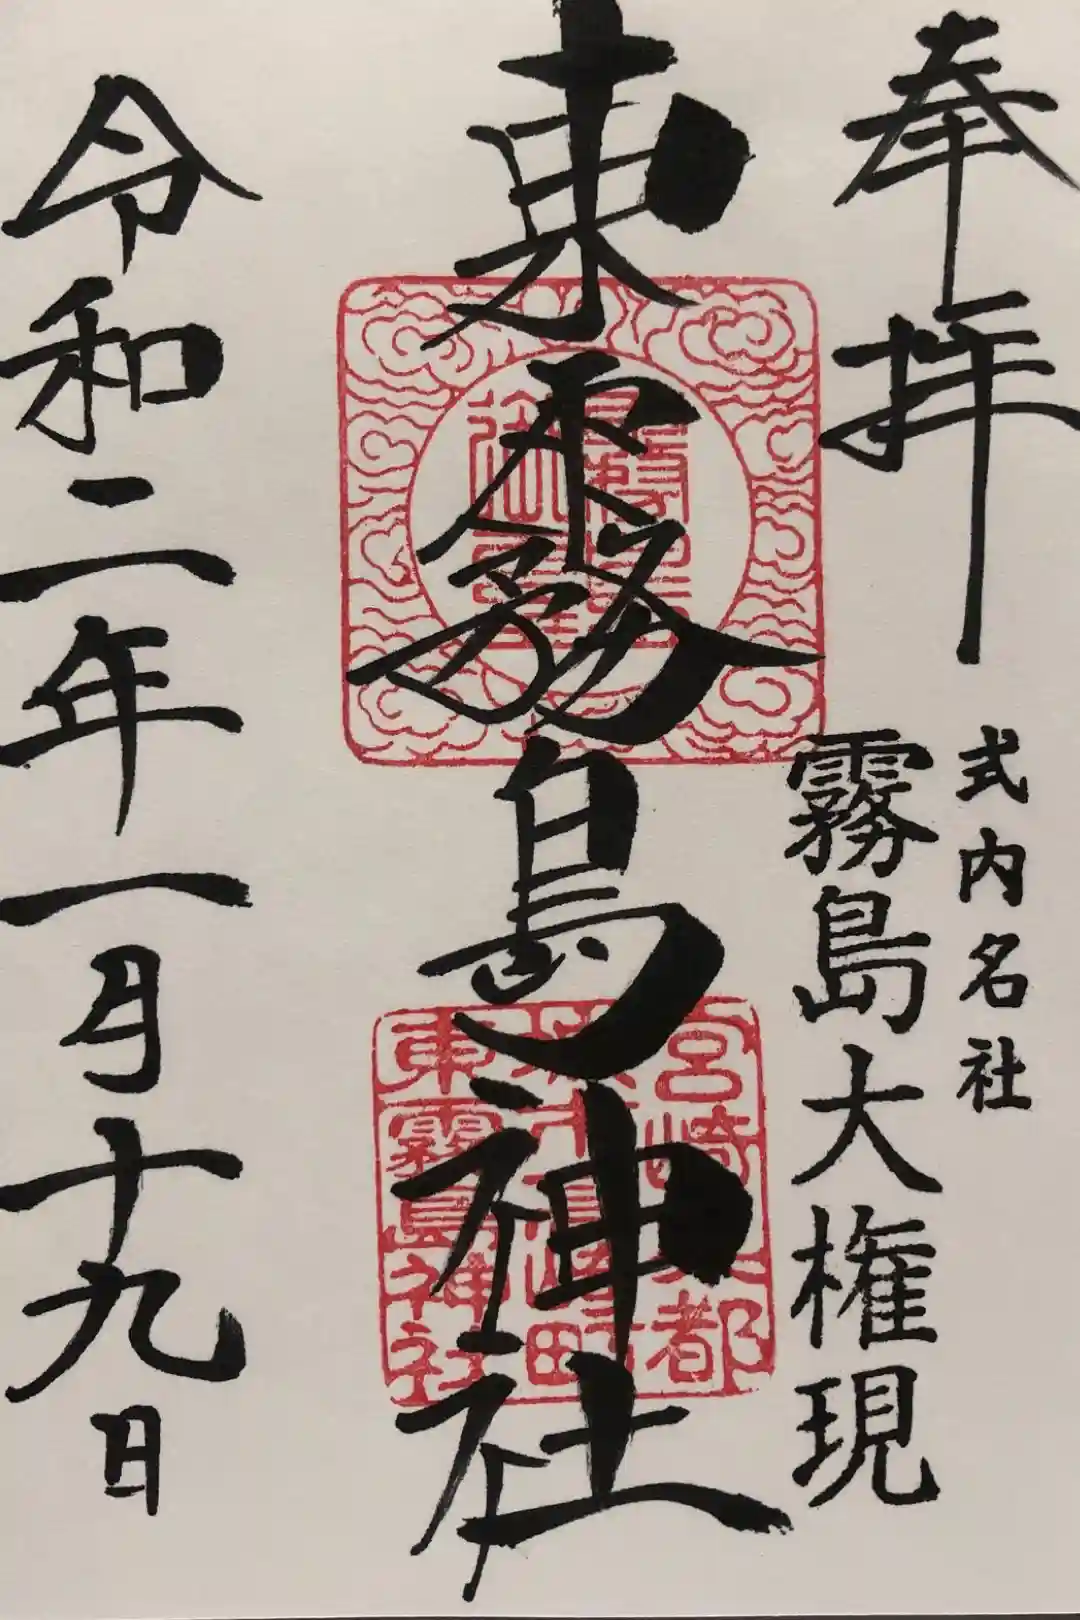 奉拝
式内名社
霧島大権現
東霧島神社
令和二年一月十九日
宮崎
都
東霧島神社